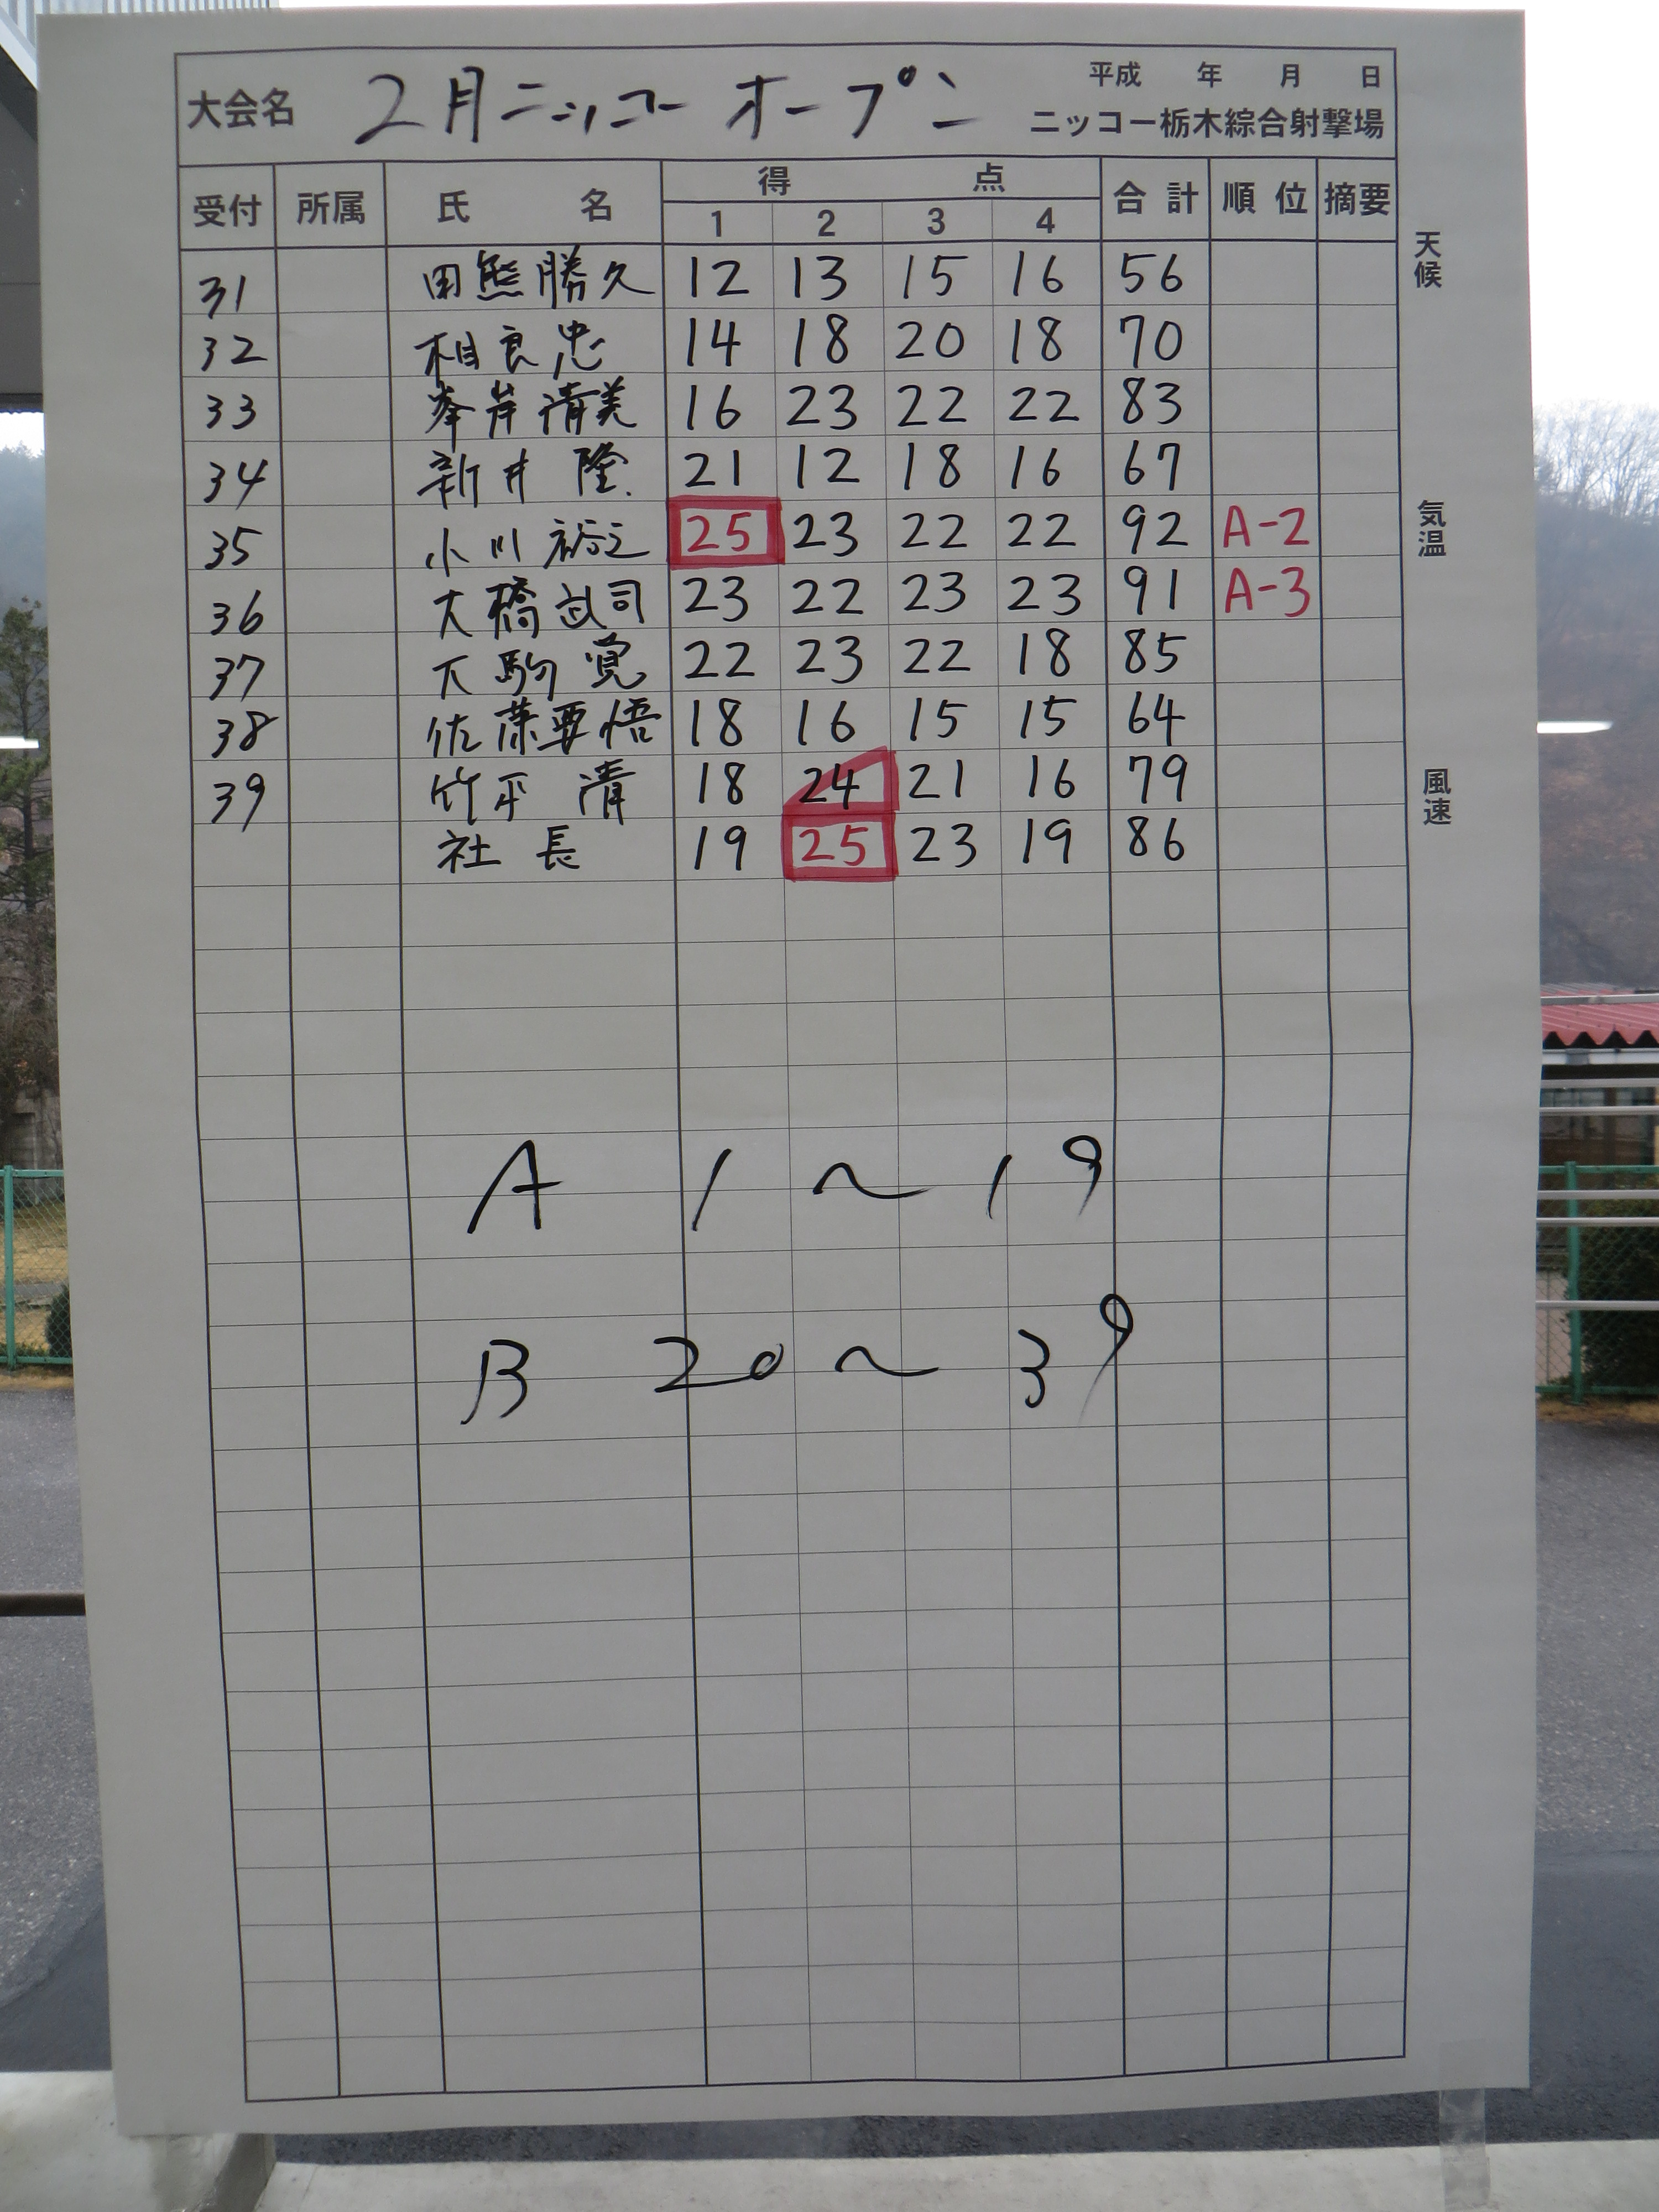 大会名 2月ニッコーオープン 平成 年 月 日
ニッコー栃木綜合射撃場
受付 所属 氏名 得点 合計 順位 摘要
1 2 3 4
31 田熊勝久 12 13 15 16 56
32 相良忠 14 18 20 18 70
33 峯岸清美 16 23 22 22 83
34 新井 隆 21 12 18 16 67
35 小川裕之 25 23 22 22 92 A-2
36 大橋武司 23 22 23 23 91 A-3
37 大駒覚 22 23 22 18 85
38 佐藤要悟 18 16 15 15 64
39 竹平 清 18 24 21 16 79
社長 19 25 23 19 86
A 1〜19
B 20〜39
天候
気温
風速